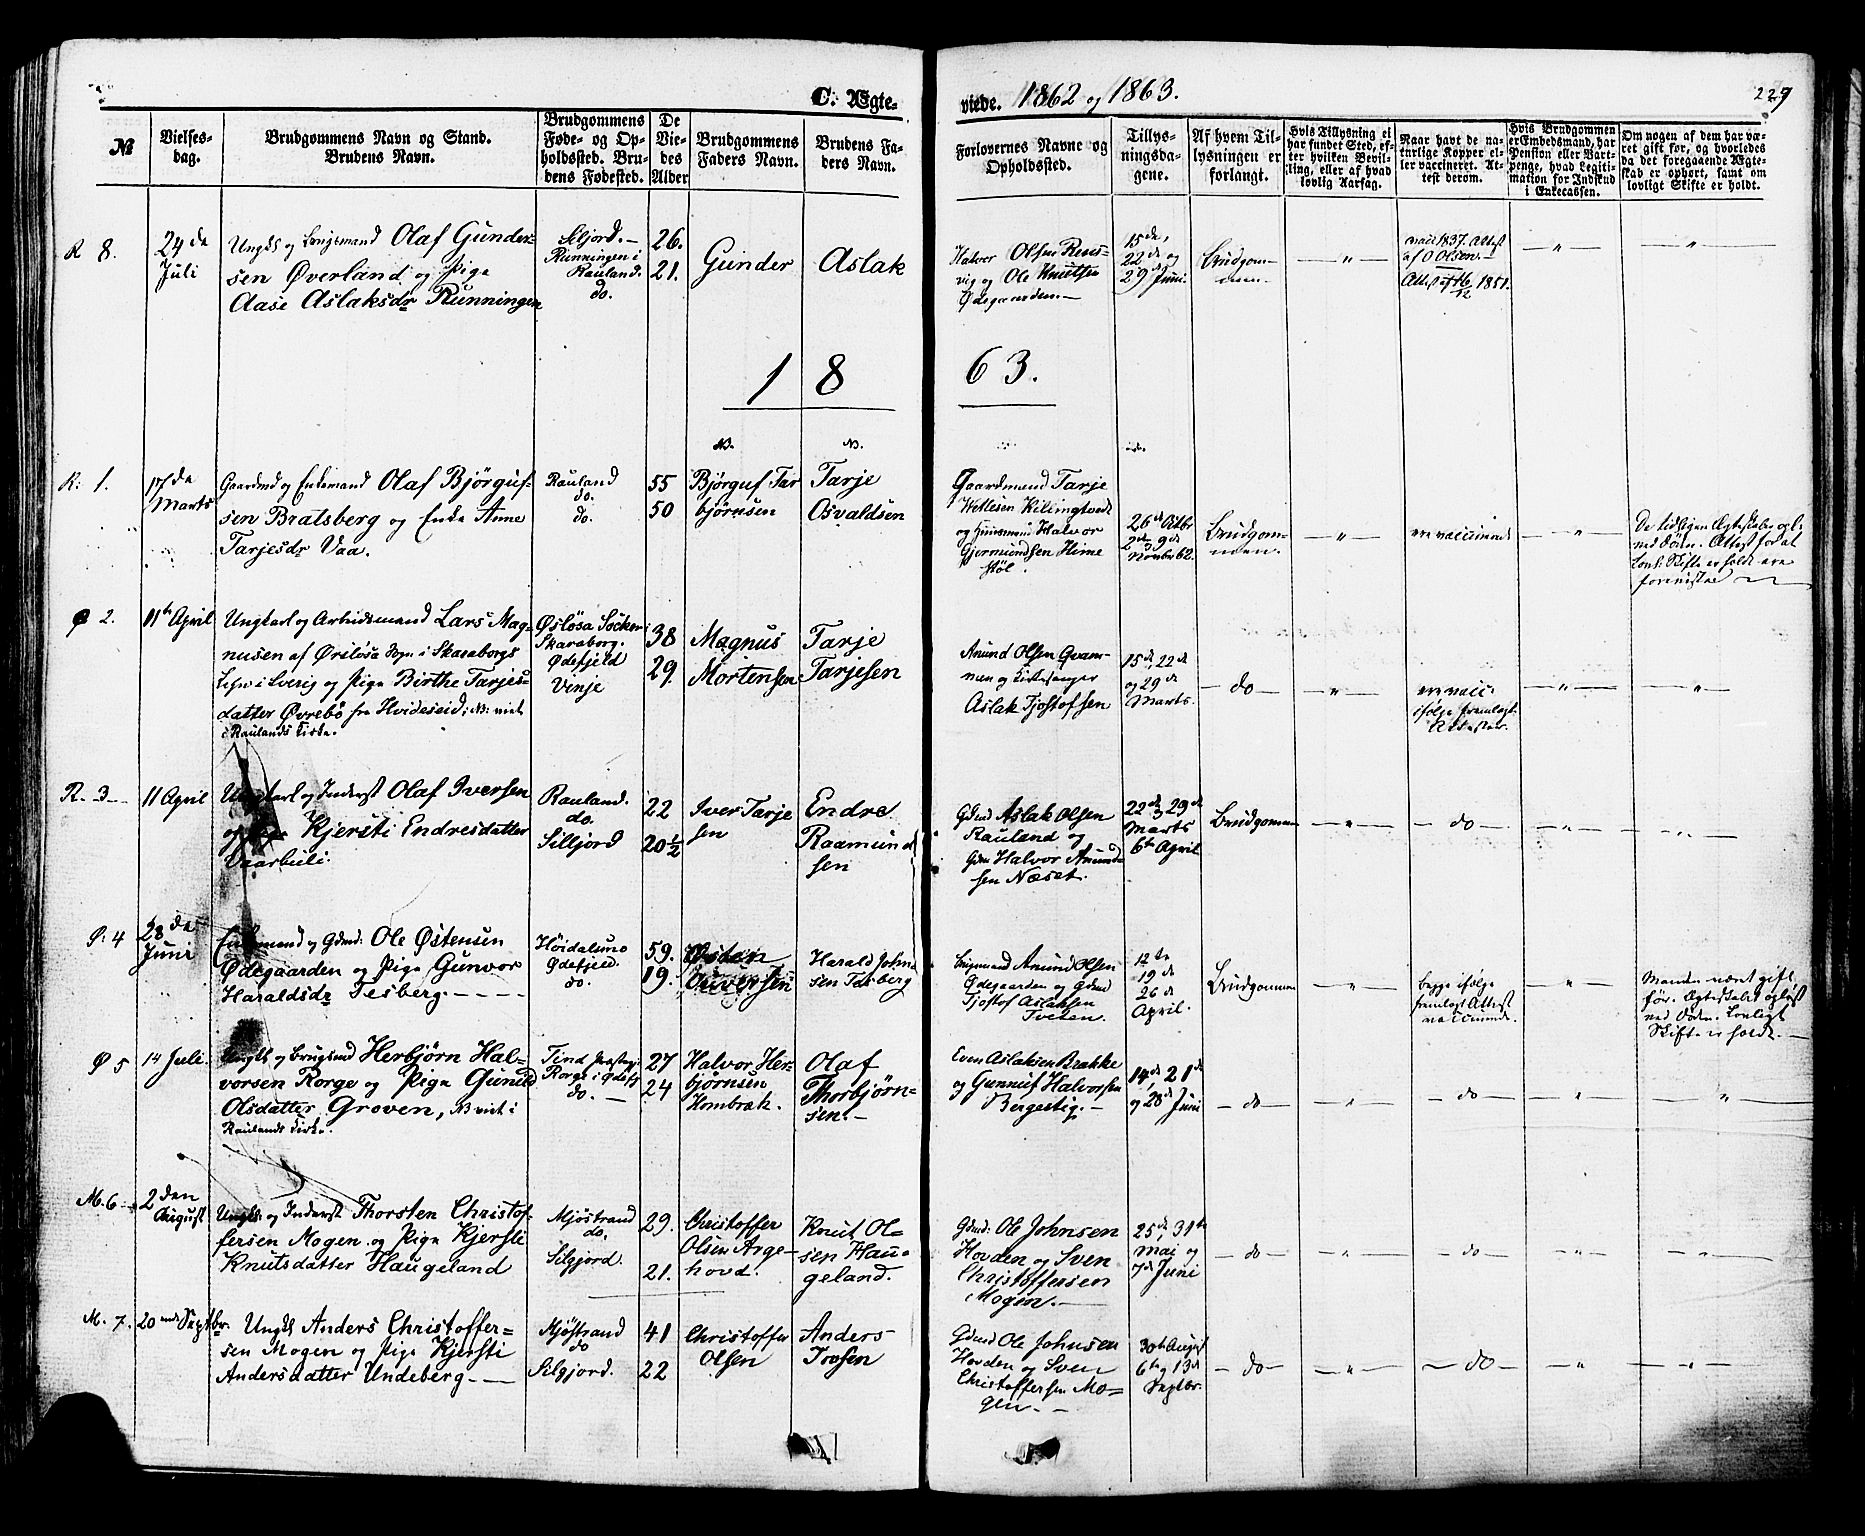 C. Ægteviede. 1862 og 1863.
229
№
Vielsesdag.
Brudgommens Navn og Stand.
Brudens Navn.
Brudgommens Føde- og Opholdssted. Brudens Fødested.
De Viedes Alder
Brudgommens Faders Navn.
Brudens Faders Navn.
Forlovernes Navne og Opholdssted.
Tillysningsdagene.
Af hvem Tillysningen er forlangt.
Hvis Tillysning ei har fundet Sted, efter hvilken Bevilling, eller af hvad lovlig Aarsag.
Naar havt de naturlige Kopper eller vaccineret. Attest derom.
Hvis Brudgommen er Embedsmand, har Pension eller Vartpenge, hvad Legitimation for Indskud i Enkecassen.
Om nogen af dem har været gift før, og hvorledes da det foregaaende Ægteskab er ophørt, samt om lovligt Skifte er holdt.
R 8.
24 de
Juli
Ungks og Brugsmand Olaf Gunder-
sen Øverland og Pige
Aase Aslaksdr Runningen
Siljord.
Runningen i
Rauland.
do.
26.
21.
Gunder
Aslak
Halvor Olsen
vig og Ole Knutsen
Ødegaarden.
15de,
22de og
29de Juni.
Brudgom-
men.
"
vacc 1837. Attest
af O Olsen.
Attest af 16/12 1851.
"
"
18 63.
NB.
NB.
R: 1.
17 de
Marts
Gaardmd og Enkemand Olaf Bjørguf-
sen Bratsberg og Enke Anne
Tarjesdr Vaa.
Rauland
do.
do.
55
50
Bjørguf Tar
bjørnsen
Tarje
Osvaldsen
Gaardmand Tarje
Kettlesen
og Huusmand Halvor
Gjermundsen Heime
støl.
26de Octbr
2den, 9de
Novbr 62.
Brudgom-
men.
"
ere vaccinerede
"
De tidligere Ægteskaber opl.
ved Døden. Attest for at
Lovl. Skifte er holdt ere
forevist
Ø 2.
11te April
Ungkarl og Arbeidsmand Lars Mag-
nusen af Øsløsa Sogn i Skaraborgs
Lehn i Sverig og Pige Birthe Tarjes-
datter Øvrebö fra Hvideseid; NB: viet
i Raulands Kirke.
Øsløsa Socken
Skaraborg.
Ødefjeld
Vinje
38
29.
Magnus
Mortensen
Tarje
Tarjesen
Amund Olsen Qvam-
men og Kirkesanger
Aslak Tjostofsen
15de, 22de
og 29de
Marts.
do
"
ere vacc.
ifølge fremlagt
Attester.
"
"
R. 3
11 April
Ungkarl og Inderst Olaf Iversen
og Pige Kjersti Endresdatter
Vaarbuli.
Rauland.
do.
Silljord
22
20½
Iver Tarje
sen
Endre
Raamund
sen
Gdmd Aslak Olsen
Rauland og
Gdm Halvor Amund
sen Næset.
22de, 29de
Marts
6te April
Brudgommen
"
do
"
"
Ø: 4
28 de
Juni
Enkemand og Gdmd: Ole Østensen
Ødegaarden og Pige Gunvor
Haraldsdr Tesberg.
Høidalsmo
Ødefjeld.
do.
59.
19.
Østen
Harald John
sen Tesberg
Brugsmand Amund Olsen
Ødegaarden og Gdmd
Tjostof Aslaksen
Tveten.
12te
19de
26de
April.
Brudgommen
"
begge ifølge
fremlagt Attest
vaccinerede.
"
Manden været gift
før. Ægteskabet opløst
ved Døden. Lovligt
Skifte er holdt.
Ø 5
14 Juli.
Ungk og Brugsmd Herbjørn Hal-
vorsen Rorge og Pige Gunild
Olsdatter Groven, NB viet i
Raulands Kirke.
Tind Præstegj.
Rorge i Ødefj
do.
27
24
Halvor Her-
bjørnsen
Hombrak.
Olaf
Thorbjørn-
sen.
Even Aslaksen Brække
og Gunnuf Halvorsen
Bergestig.
14de, 21de
og 28de Juni
do
"
do
"
"
M. 6
2 den
August
Ungk. og Inderst Thorsten Christof-
fersen Mogen og Pige Kjersti
Knutsdatter Haugeland
Mjöstrand
do.
Silgjord.
29.
21.
Christoffer
Olsen Arge-
hovd.
Knut Ol-
sen Hau-
geland.
Gdmd. Ole Johnsen
Hovden og Sven
Christoffersen
Mogen.
25de, 31te
Mai og
7de Juni
do
"
do
"
"
M. 7.
20nde Septbr.
Ungk Anders Christoffer-
sen Mogen og Pige Kjersti
Andersdatter Undeberg
Mjöstrand
do
Silgjord.
41
22
Christoffer
Olsen
Anders
Gdmd Ole Johnsen
Hovden og Sven
Christoffersen Mo-
gen.
30te August
6te og 13de
Septbr.
do
"
do
"
"